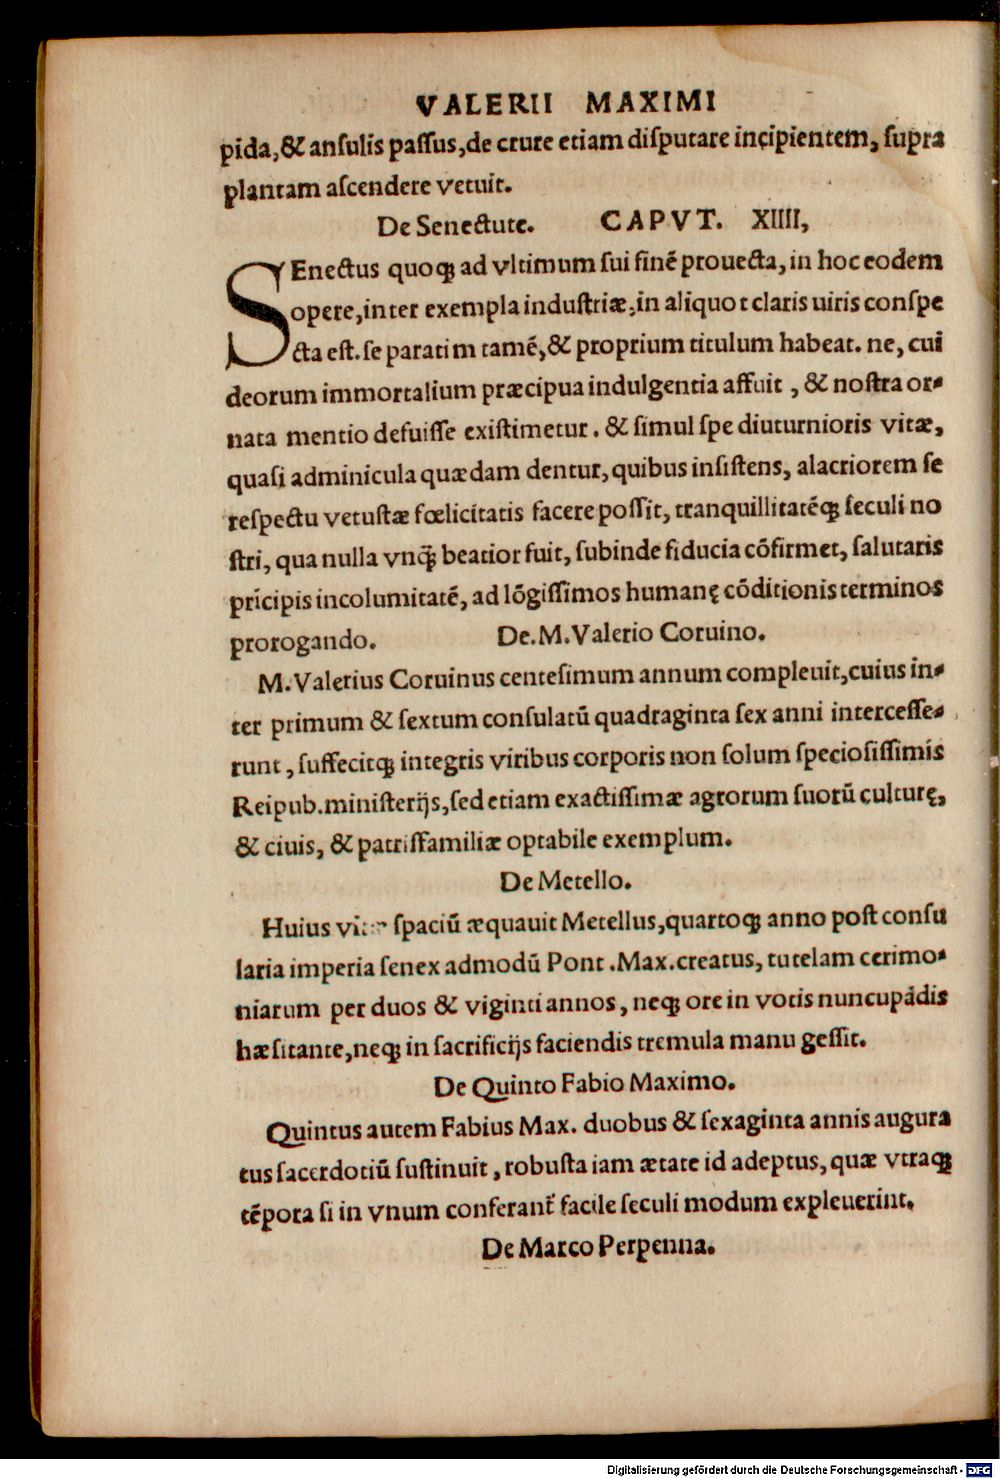 VALERII MAXIMI
pida, & ansulis passus, de crure etiam disputare incipientem, supra
plantam ascendere vetuit.
De Senectute. CAPVT. XIIII,
SEnectus quoqꝫ ad vltimum sui finē prouecta, in hoc eodem
opere, inter exempla industriæ, in aliquot claris uiris conspe
cta est. separatim tamē, & proprium titulum habeat. ne, cui
deorum immortalium præcipua indulgentia affuit, & nostra or-
nata mentio defuisse existimetur. & simul spe diuturnioris vitæ,
quasi adminicula quædam dentur, quibus insistens, alacriorem se
respectu vetustæ fœlicitatis facere possit, tranquillitatēqꝫ seculi no
stri, qua nulla vnqꝫ̄ beatior fuit, subinde fiducia cōfirmet, salutaris
prīcipis incolumitatē, ad lōgissimos humanę cōditionis terminos
prorogando. De. M. Valerio Coruino.
M. Valerius Coruinus centesimum annum compleuit, cuius in-
ter primum & sextum consulatū quadraginta sex anni intercesse-
runt, suffecitqꝫ integris viribus corporis non solum speciosissimis
Reipub. ministerijs, sed etiam exactissimæ agrorum suorū culturę,
& ciuis, & patrisfamiliæ optabile exemplum.
De Metello.
Huius spaciū æquauit Metellus, quartoqꝫ anno post consu
laria imperia senex admodū Pont. Max. creatus, tutelam cerimo-
niarum per duos & viginti annos, neqꝫ ore in votis nuncupādis
hæsitante, neqꝫ in sacrificijs faciendis tremula manu gessit.
De Quinto Fabio Maximo.
Quintus autem Fabius Max. duobus & sexaginta annis augura
tus sacerdotiū sustinuit, robusta iam ætate id adeptus, quæ vtraqꝫ
tēpora si in vnum conferant᷑ facile seculi modum expleuerint.
De Marco Perpenna.
Digitalisierung gefördert durch die Deutsche Forschungsgemeinschaft - DFG